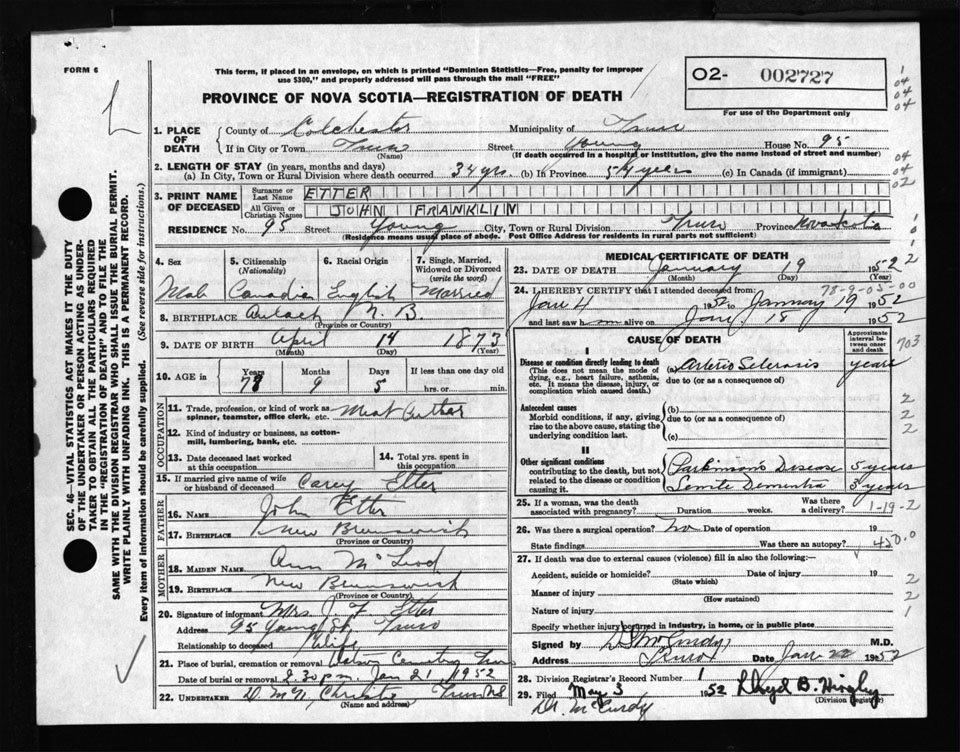 FORM 6
This form, if placed in an envelope, on which is printed "Dominion Statistics—Free, penalty for improper
use $300," and properly addressed will pass through the mail "FREE"
O2- 002727
For use of the Department only
PROVINCE OF NOVA SCOTIA—REGISTRATION OF DEATH
1. PLACE OF DEATH
County of Colchester Municipality of Truro
If in City or Town Truro Street Young House No. 95
(Name) (If death occurred in a hospital or institution, give the name instead of street and number)
2. LENGTH OF STAY (in years, months and days)
(a) In City, Town or Rural Division where death occurred 34 yrs. (b) In Province 54 years (c) In Canada (if immigrant)
3. PRINT NAME OF DECEASED
Surname or Last Name ETTER
All Given or Christian Names JOHN FRANKLIN
RESIDENCE No. 95 Street Young City, Town or Rural Division Truro Province Nova Scotia
(Residence means usual place of abode. Post Office Address for residents in rural parts not sufficient)
4. Sex Male
5. Citizenship (Nationality) Canadian
6. Racial Origin English
7. Single, Married, Widowed or Divorced (write the word) Married
8. BIRTHPLACE Aulac N. B.
(Province or Country)
9. DATE OF BIRTH April 14 1873
(Month) (Day) (Year)
10. AGE in Years 78 Months 9 Days 5 If less than one day old
hrs. or min.
OCCUPATION
11. Trade, profession, or kind of work as spinner, teamster, office clerk, etc. Meat Cutter
12. Kind of industry or business, as cotton-mill, lumbering, bank, etc.
13. Date deceased last worked at this occupation
14. Total yrs. spent in this occupation
15. If married give name of wife or husband of deceased Carey Etter
FATHER
16. NAME John Etter
17. BIRTHPLACE New Brunswick
(Province or Country)
MOTHER
18. MAIDEN NAME Ann McLeod
19. BIRTHPLACE New Brunswick
(Province or Country)
20. Signature of informant Mrs J. F. Etter
Address 95 Young St. Truro
Relationship to deceased Wife
21. Place of burial, cremation or removal Cemetery Truro
Date of burial or removal 2.30 p.m. Jan 21 1952
22. UNDERTAKER Christie Truro NS
(Name and address)
SEC. 46—VITAL STATISTICS ACT MAKES IT THE DUTY
OF THE UNDERTAKER OR PERSON ACTING AS UNDER-
TAKER TO OBTAIN ALL THE PARTICULARS REQUIRED
IN THE "REGISTRATION OF DEATH" AND TO FILE THE
SAME WITH THE DIVISION REGISTRAR WHO SHALL ISSUE THE BURIAL PERMIT.
WRITE PLAINLY WITH UNFADING INK. THIS IS A PERMANENT RECORD.
Every item of information should be carefully supplied. (See reverse side for instructions.)
MEDICAL CERTIFICATE OF DEATH
23. DATE OF DEATH January 19 1952
(Month) (Day) (Year)
78-9-05-00
24. I HEREBY CERTIFY that I attended deceased from:
Jan 4 1952 to January 19 1952
and last saw him alive on Jan 18 1952
CAUSE OF DEATH
Approximate interval between onset and death
I
Disease or condition directly leading to death
(This does not mean the mode of dying, e.g., heart failure, asthenia, etc. It means the disease, injury, or complication which caused death.)
(a) Arterio Sclerosis years
due to (or as a consequence of)
703
Antecedent causes
Morbid conditions, if any, giving rise to the above cause, stating the underlying condition last.
(b)
due to (or as a consequence of)
(c)
II
Other significant conditions
contributing to the death, but not related to the disease or condition causing it.
Parkinson's Disease 5 years
Senile Dementia 3 years
25. If a woman, was the death associated with pregnancy? Duration weeks. Was there a delivery?
1-19-2
26. Was there a surgical operation? no Date of operation 19
State findings Was there an autopsy?
450.0
27. If death was due to external causes (violence) fill in also the following:—
Accident, suicide or homicide? Date of injury 19
(State which)
Manner of injury
(How sustained)
Nature of injury
Specify whether injury occurred in industry, in home, or in public place
Signed by McCurdy M.D.
Address Truro Date Jan 22 1952
28. Division Registrar's Record Number 1
29. Filed May 3 1952 Lloyd B. Higby
(Division Registrar)
Dr. McCurdy